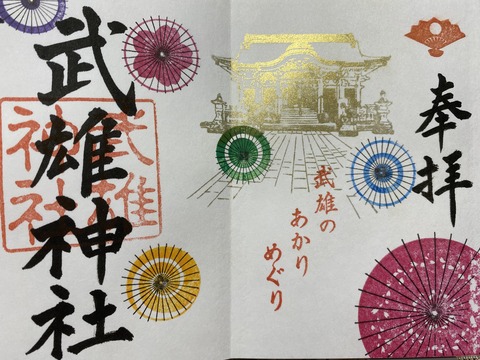 奉拝
武雄の
あかり
めぐり
武雄神社
武雄
神社